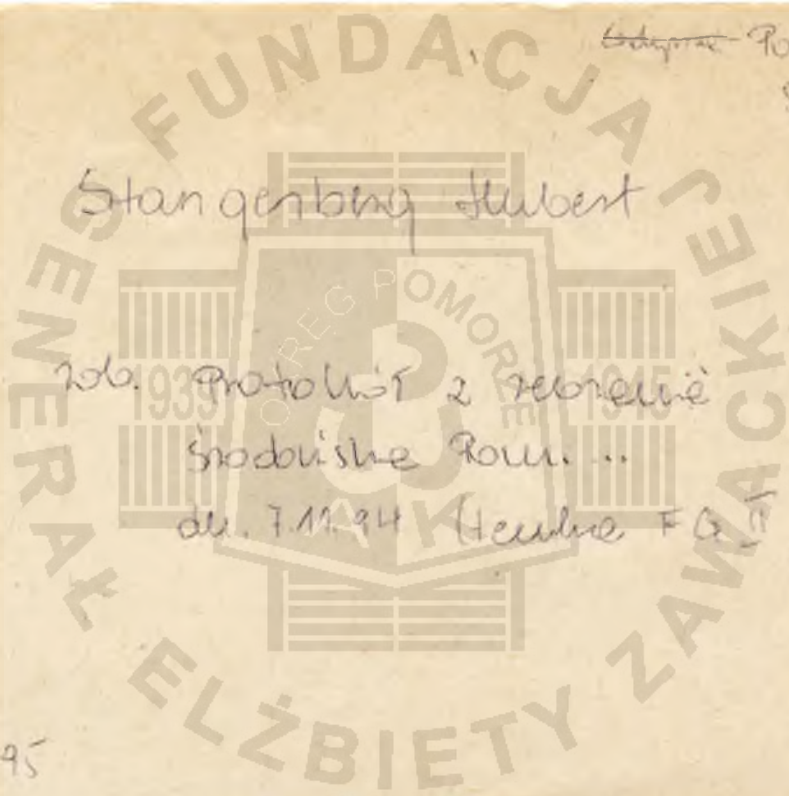 Po
Stangenberg Hubert
zob. Protokół z zebrania
środowiska Pom. ...
dn. 7.11.94 (teczka FG II
95
FUNDACJA
GENERAŁ ELŻBIETY ZAWACKIEJ
OKRĘG POMORZE
1939 1945
AK